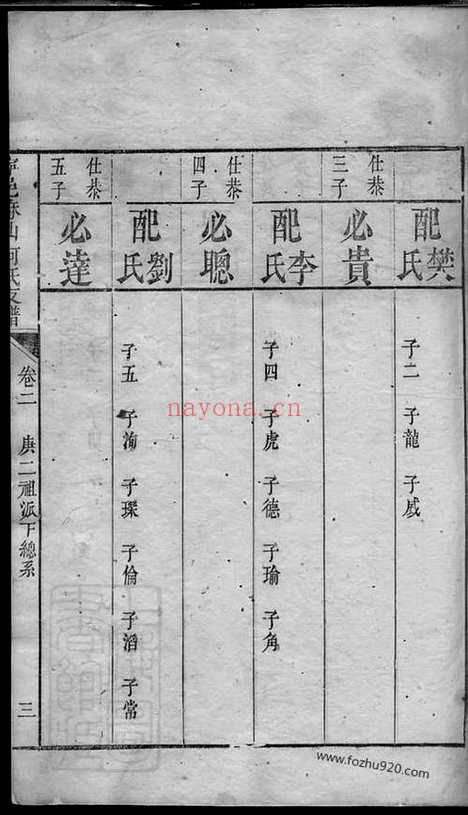 配樊氏
子二 子龍 子威
仕恭三子
必貴
配李氏
子四 子虎 子德 子瑜 子角
仕恭四子
必聰
配劉氏
子五 子洵 子琛 子倫 子滔 子常
仕恭五子
必達
何氏支譜
卷二 庚二祖派下總系
三
nayona.cn
www.fozhu920.com